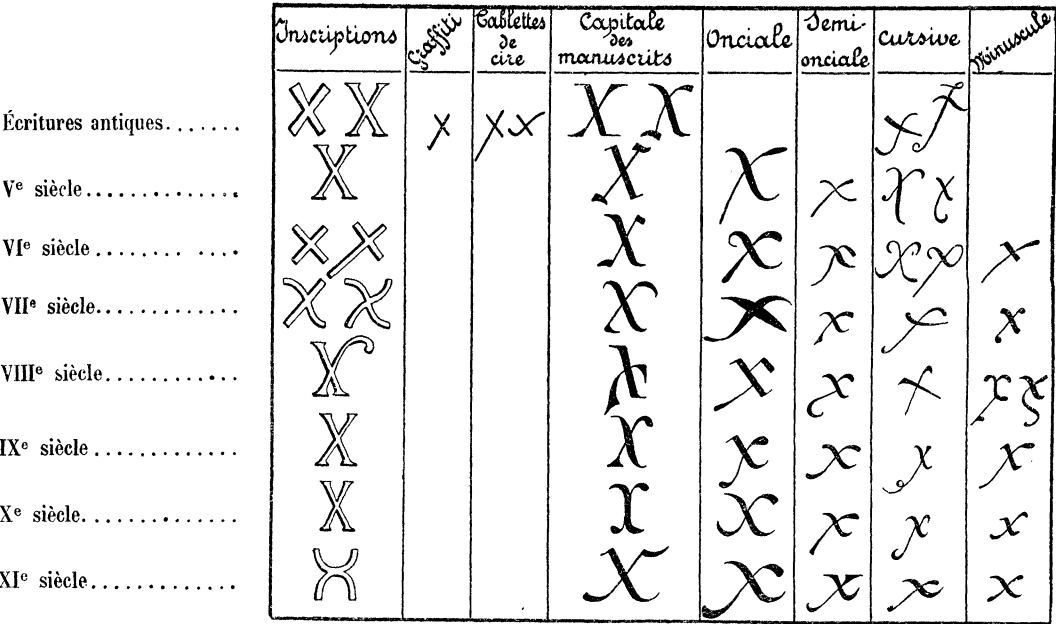 Inscriptions Graffiti Tablettes de cire Capitale des manuscrits Onciale Semi-onciale cursive Minuscule
Écritures antiques....... X X x x x X X x x
Vᵉ siècle.............. X X X x x x
VIᵉ siècle ............ x x X x x x x x
VIIᵉ siècle............. x x X x x x x
VIIIᵉ siècle............ X X x x x x x
IXᵉ siècle ............. X X x x x x
Xᵉ siècle.............. X X x x x x
XIᵉ siècle............. X X x x x x